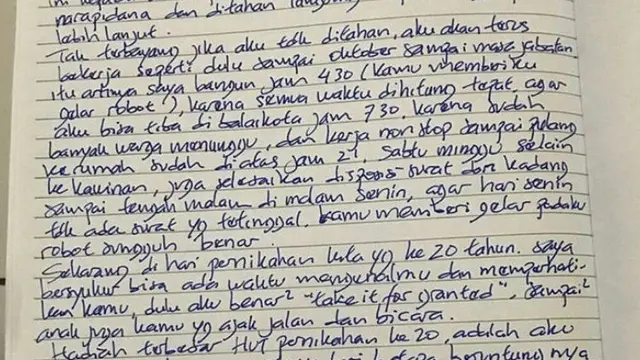 narapidana dan ditahan
lebih lanjut.
Tak terbayang jika aku tdk ditahan, aku akan terus
bekerja seperti dulu sampai oktober sampai masa jabatan
itu artinya saya bangun jam 430 (kamu memberiku
gelar robot), karena semua waktu dihitung tepat, agar
aku bisa tiba di balaikota jam 730, karena sudah
banyak warga menunggu, dan kerja non stop sampai pulang
kerumah sudah diatas jam 21, Sabtu minggu selain
ke kawinan, juga selesaikan disposisi surat dan kadang
sampai tengah malam di malam senin, agar hari senin
tdk ada surat yg tertinggal. kamu memberi gelar padaku
robot sungguh benar.
Sekarang di hari pernikahan kita yg ke 20 tahun. saya
bersyukur bisa ada waktu mengenalmu dan memperhati-
kan kamu, dulu aku benar² "take it for granted", sampai²
anak juga kamu yg ajak jalan dan bicara.
Hadiah terbesar HUT pernikahan ke 20, adilah aku
beruntung nya